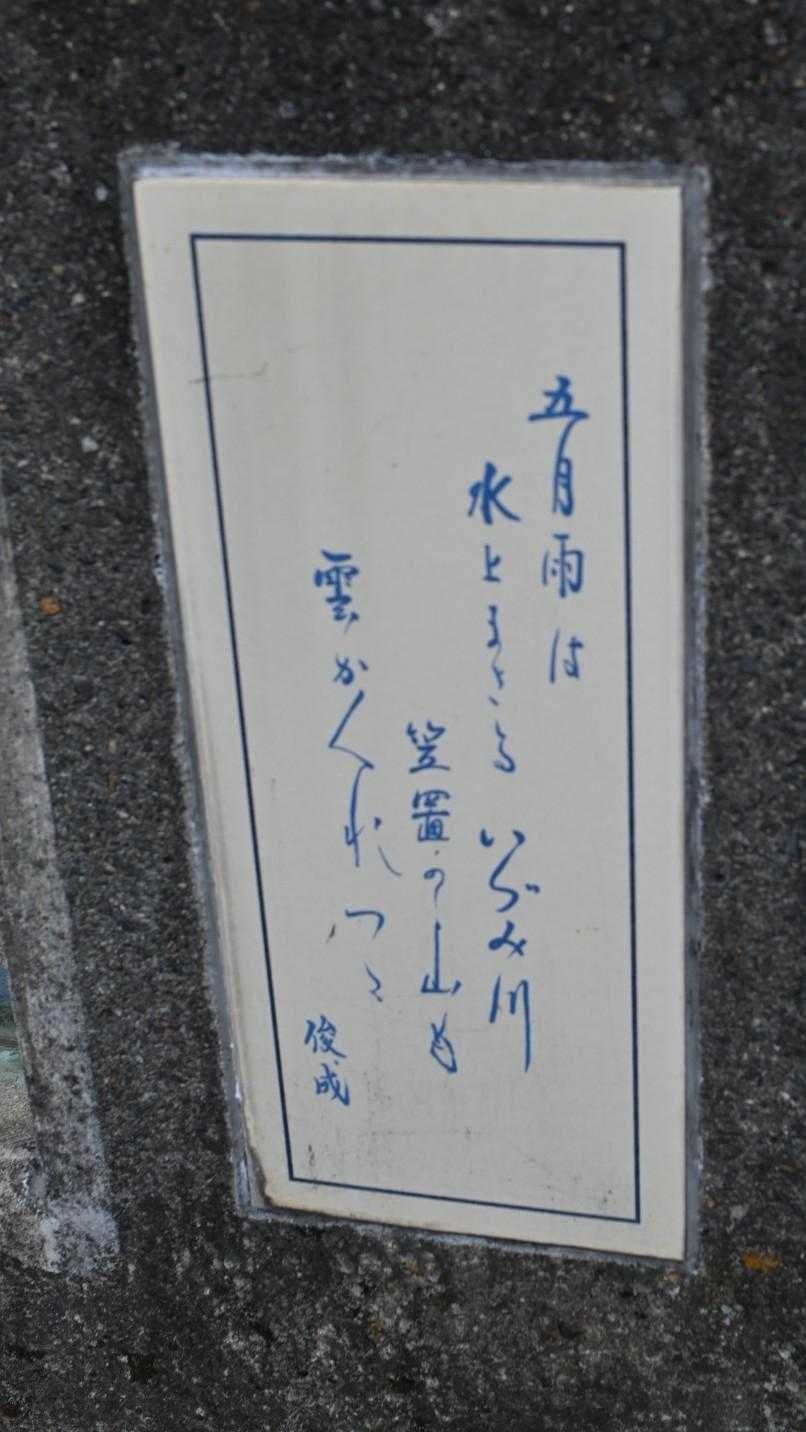 五月雨は
水上まさる いづみ川
笠置の山も
雲がくれつゝ
俊成